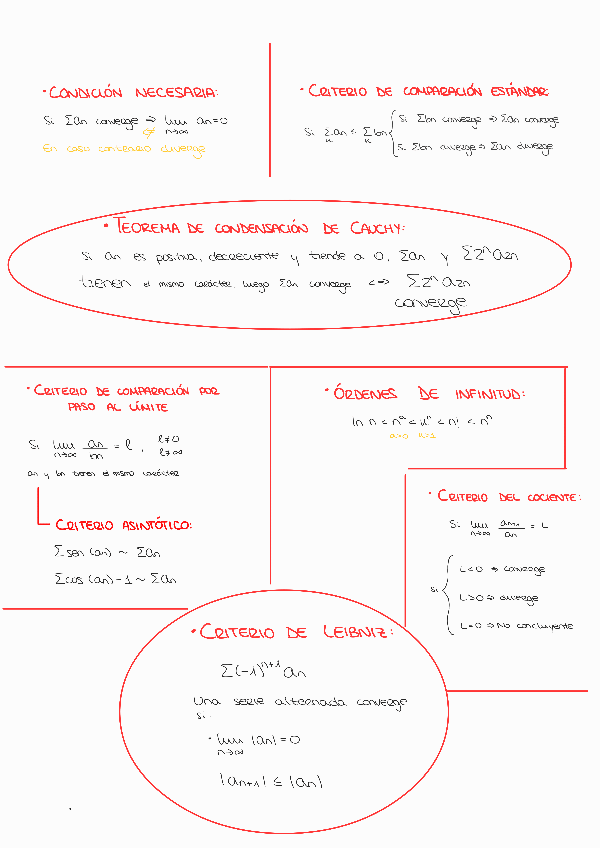 · CONDICIÓN NECESARIA:
Si Σan converge ⇒ lim an=0
n→∞
En caso contrario diverge
· CRITERIO DE COMPARACIÓN ESTÁNDAR
Si Σan < Σbn
Si Σbn converge ⇒ Σan converge
Si Σbn diverge ⇒ Σan diverge
· TEOREMA DE CONDENSACIÓN DE CAUCHY:
Si an es positiva, decreciente y tiende a 0, Σan y Σ2ⁿa2n
tienen el mismo carácter, luego Σan converge <=> Σ2ⁿa2n
converge
· CRITERIO DE COMPARACIÓN POR
PASO AL LÍMITE
Si lim an/bn = l, l≠0
n→∞ l≠∞
an y bn tienen el mismo carácter
CRITERIO ASINTÓTICO:
Σ sen (an) ~ Σan
Σcos (an)-1 ~ Σan
· ÓRDENES DE INFINITUD:
ln n < nᵃ < kⁿ < n! < nⁿ
· CRITERIO DEL COCIENTE:
Si lim an+1/an = L
n→∞
Si
L<0 ⇒ converge
L>0 ⇒ diverge
L=0 ⇒ No concluyente
· CRITERIO DE LEIBNIZ:
Σ(-1)ⁿ⁺¹ an
Una serie alternada converge
si:
· lim |an| = 0
n→∞
|an+1| ≤ |an|